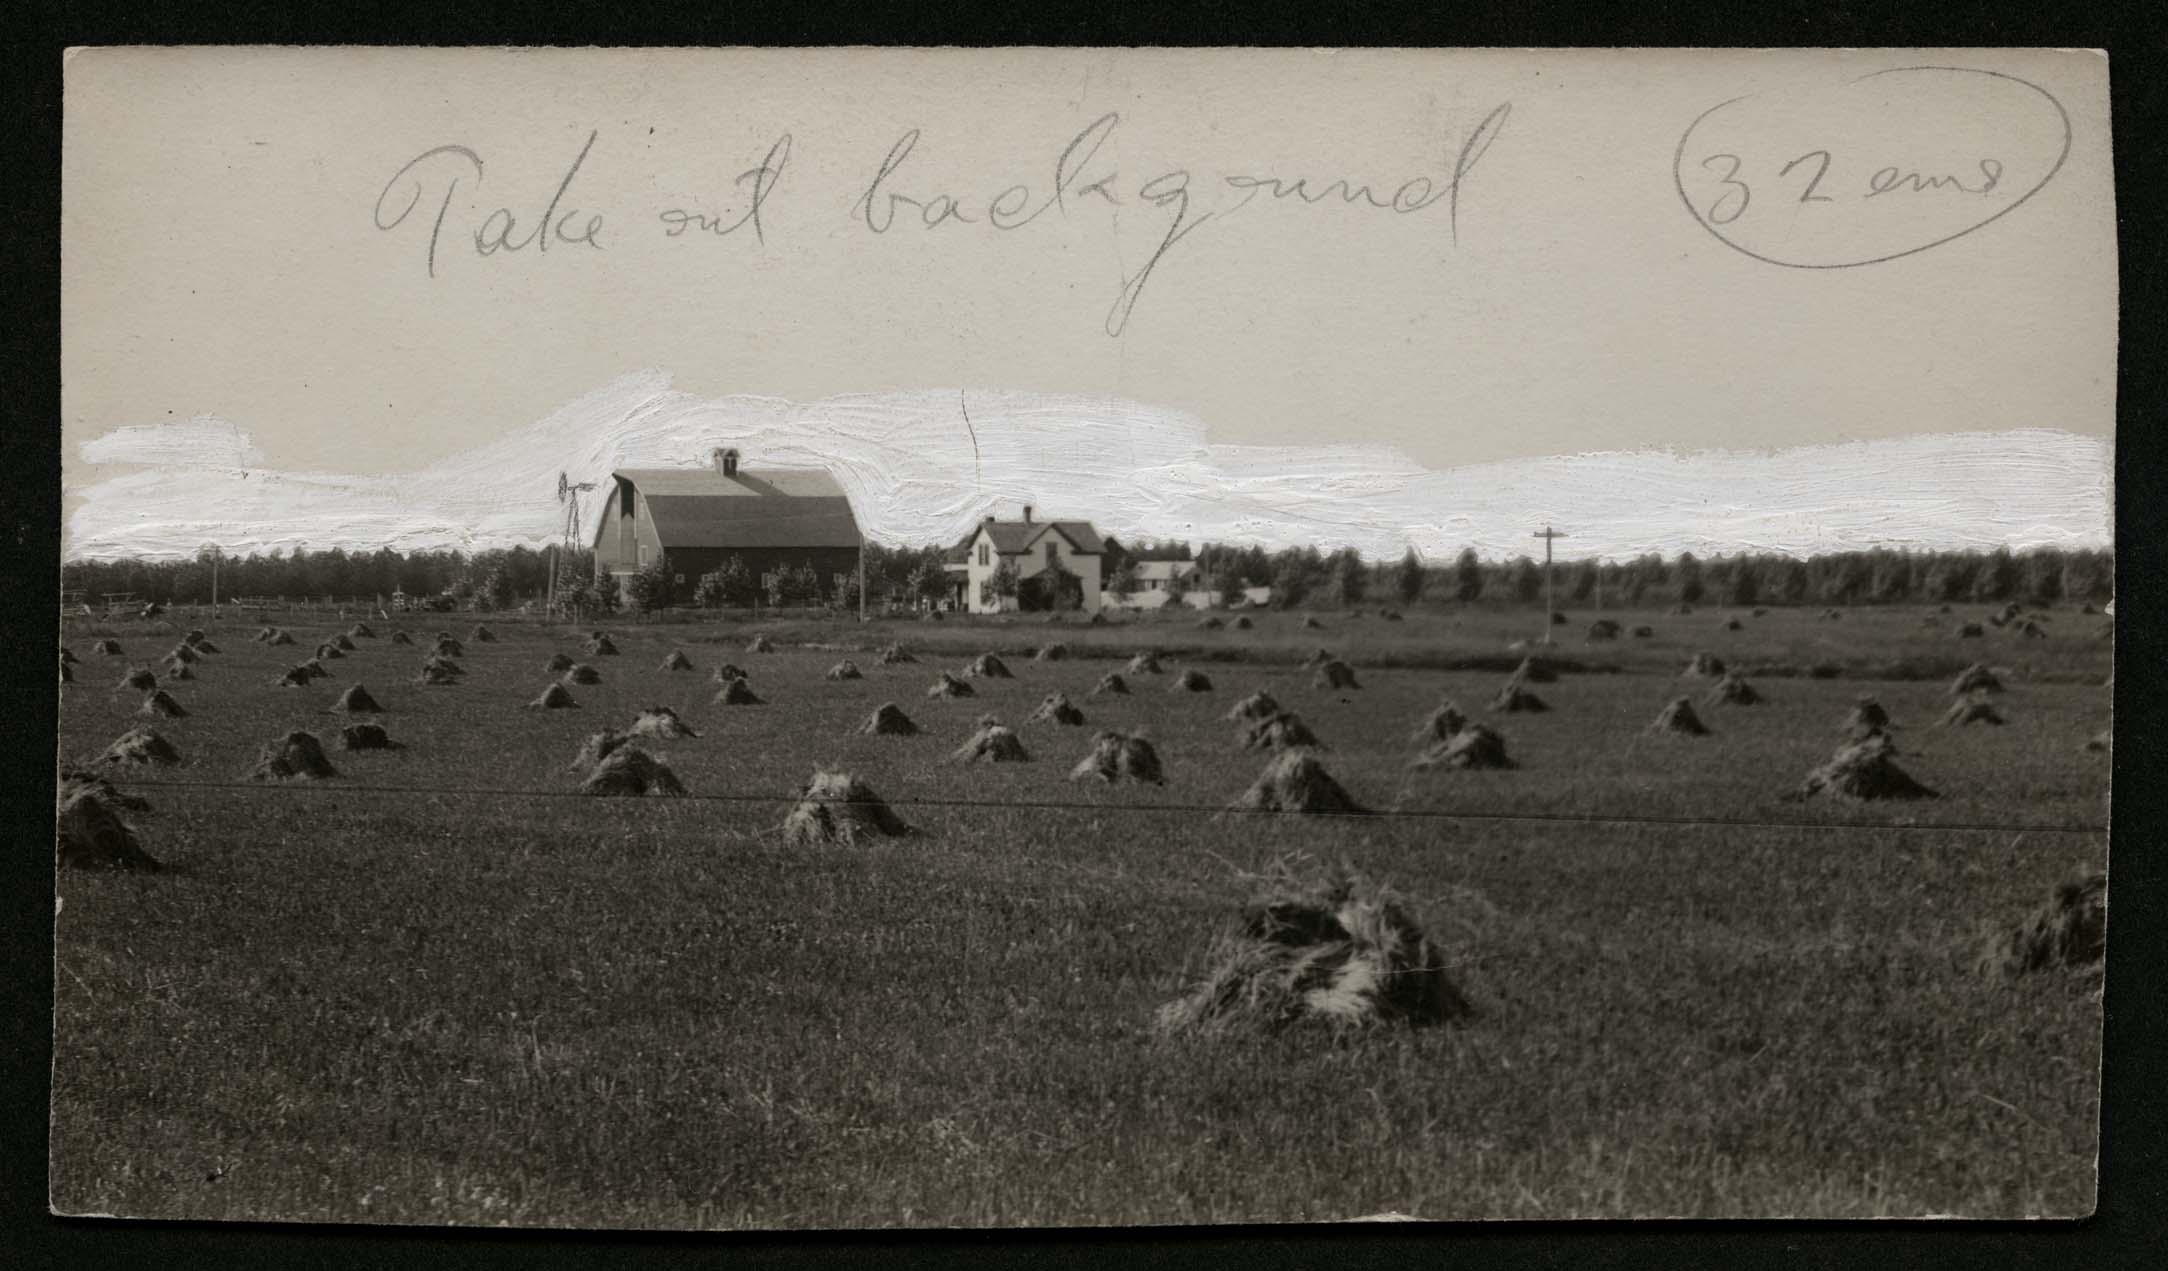 Take out background
32 ems